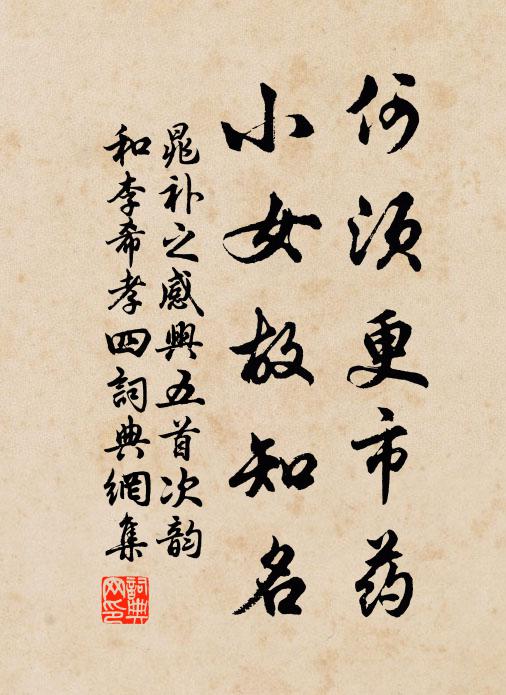 何须更市药
小女故知名
晁补之感興五首次韵
和李希孝四詞典網集
詞典
网印